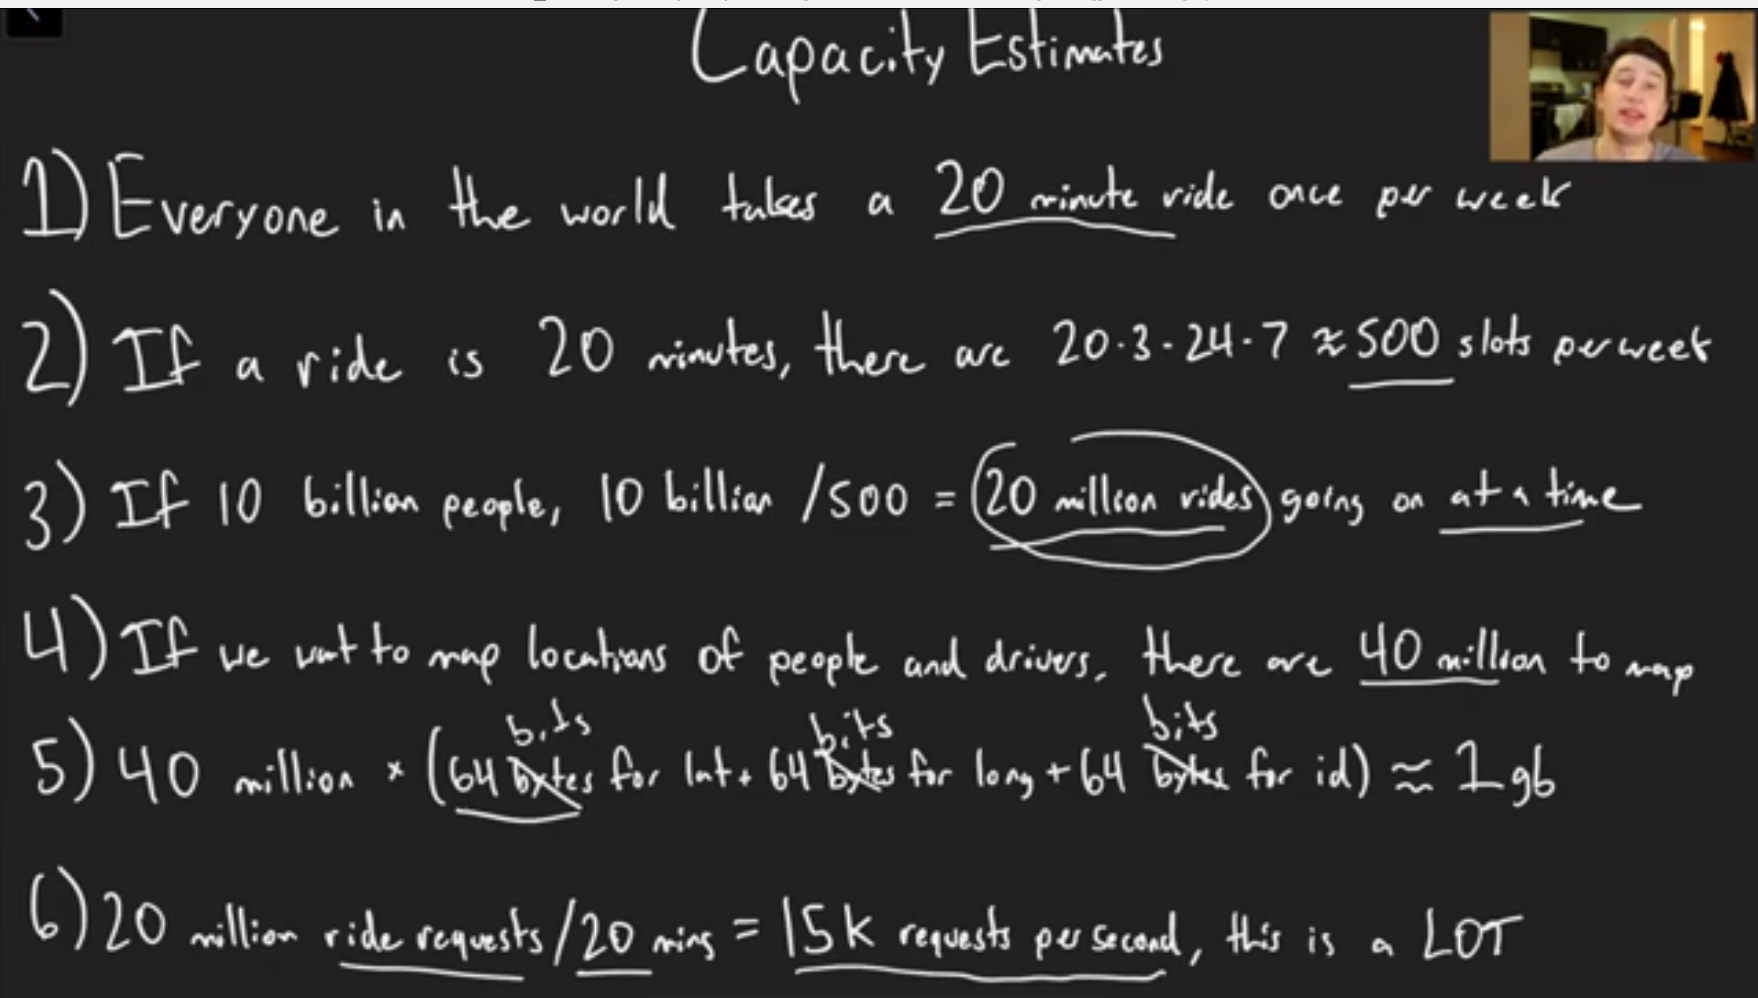 Capacity Estimates
1) Everyone in the world takes a 20 minute ride once per week
2) If a ride is 20 minutes, there are 20·3·24·7 ≈ 500 slots per week
3) If 10 billion people, 10 billion /500 = 20 million rides going on at a time
4) If we want to map locations of people and drivers, there are 40 million to map
bits bits bits
5) 40 million * (64 bytes for lat + 64 bytes for long + 64 bytes for id) ≈ 1gb
6) 20 million ride requests / 20 mins = 15k requests per second, this is a LOT